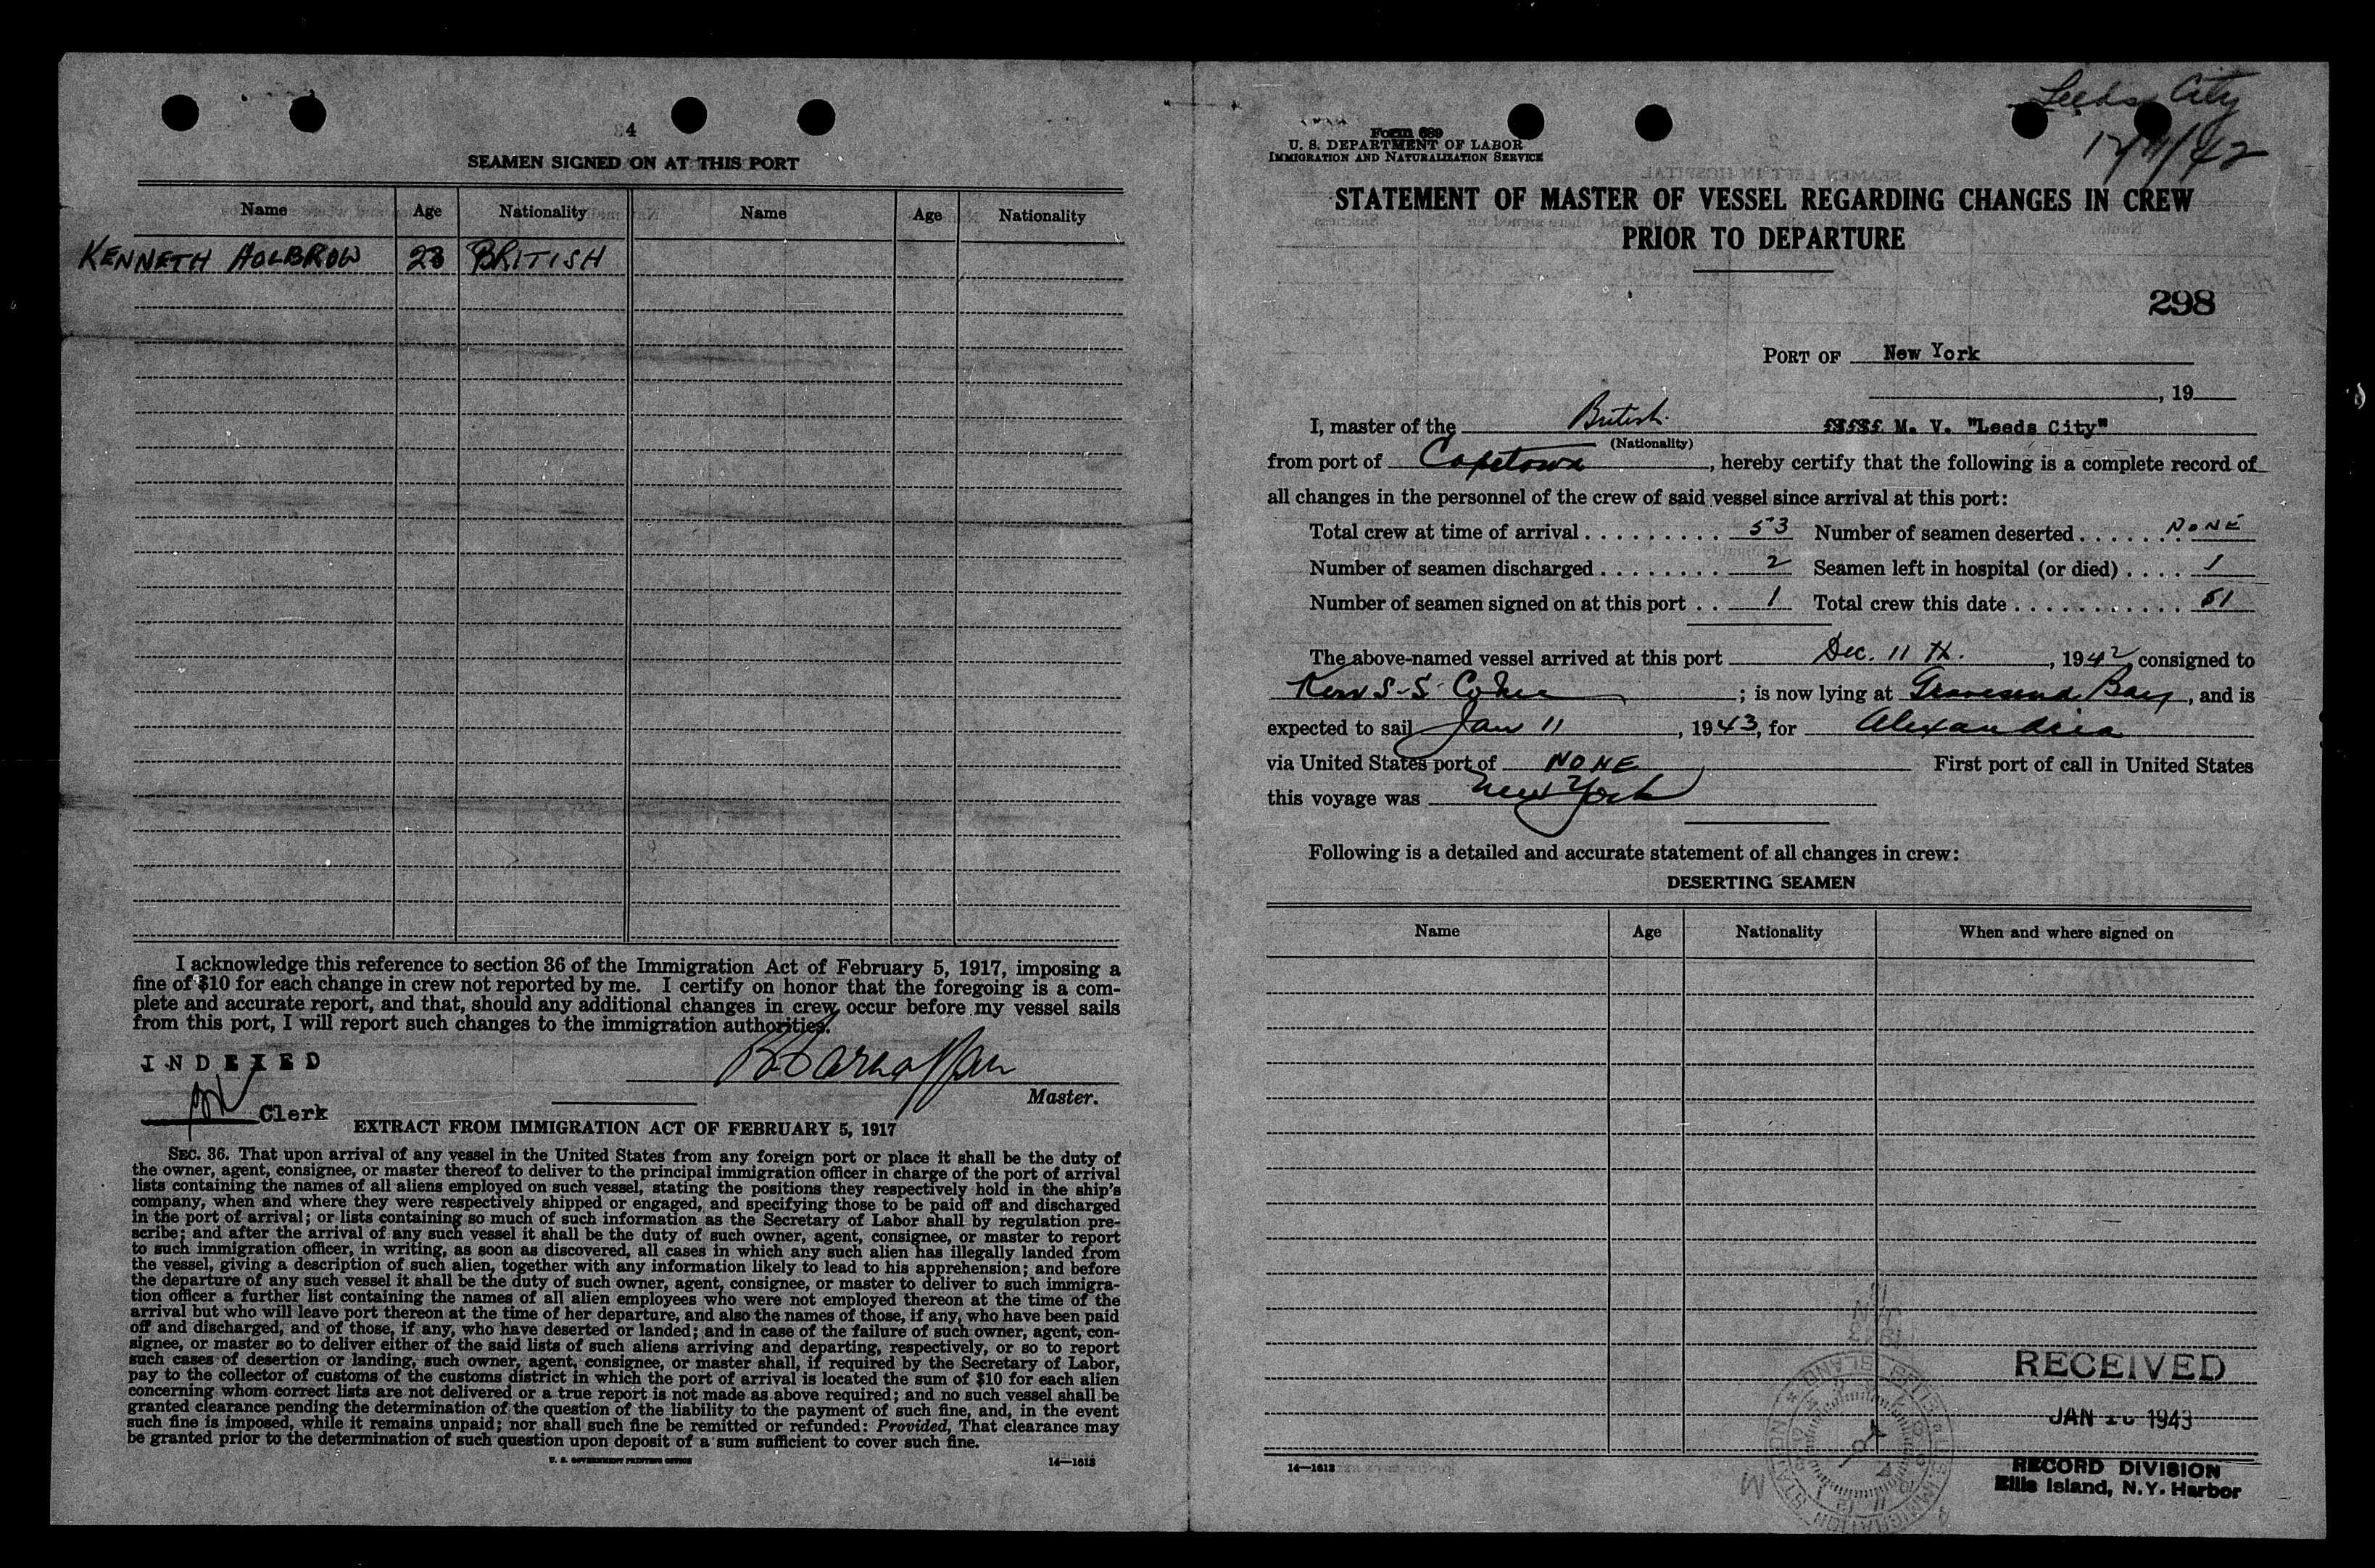 4
SEAMEN SIGNED ON AT THIS PORT
Name Age Nationality Name Age Nationality
KENNETH HOLBROW 23 BRITISH
I acknowledge this reference to section 36 of the Immigration Act of February 5, 1917, imposing a
fine of $10 for each change in crew not reported by me. I certify on honor that the foregoing is a com-
plete and accurate report, and that, should any additional changes in crew occur before my vessel sails
from this port, I will report such changes to the immigration authorities.
INDEXED
Master.
Clerk
EXTRACT FROM IMMIGRATION ACT OF FEBRUARY 5, 1917
SEC. 36. That upon arrival of any vessel in the United States from any foreign port or place it shall be the duty of
the owner, agent, consignee, or master thereof to deliver to the principal immigration officer in charge of the port of arrival
lists containing the names of all aliens employed on such vessel, stating the positions they respectively hold in the ship's
company, when and where they were respectively shipped or engaged, and specifying those to be paid off and discharged
in the port of arrival; or lists containing so much of such information as the Secretary of Labor shall by regulation pre-
scribe; and after the arrival of any such vessel it shall be the duty of such owner, agent, consignee, or master to report
to such immigration officer, in writing, as soon as discovered, all cases in which any such alien has illegally landed from
the vessel, giving a description of such alien, together with any information likely to lead to his apprehension; and before
the departure of any such vessel it shall be the duty of such owner, agent, consignee, or master to deliver to such immigra-
tion officer a further list containing the names of all alien employees who were not employed thereon at the time of the
arrival but who will leave port thereon at the time of her departure, and also the names of those, if any, who have been paid
off and discharged, and of those, if any, who have deserted or landed; and in case of the failure of such owner, agent, con-
signee, or master so to deliver either of the said lists of such aliens arriving and departing, respectively, or so to report
such cases of desertion or landing, such owner, agent, consignee, or master shall, if required by the Secretary of Labor,
pay to the collector of customs of the customs district in which the port of arrival is located the sum of $10 for each alien
concerning whom correct lists are not delivered or a true report is not made as above required; and no such vessel shall be
granted clearance pending the determination of the question of the liability to the payment of such fine, and, in the event
such fine is imposed, while it remains unpaid; nor shall such fine be remitted or refunded: Provided, That clearance may
be granted prior to the determination of such question upon deposit of a sum sufficient to cover such fine.
U. S. GOVERNMENT PRINTING OFFICE 14—1613
Leeds City
12/11/42
Form 689
U. S. DEPARTMENT OF LABOR
IMMIGRATION AND NATURALIZATION SERVICE
STATEMENT OF MASTER OF VESSEL REGARDING CHANGES IN CREW
PRIOR TO DEPARTURE
298
PORT OF New York
, 19
I, master of the British M. V. "Leeds City"
(Nationality)
from port of Capetown, hereby certify that the following is a complete record of
all changes in the personnel of the crew of said vessel since arrival at this port:
Total crew at time of arrival 53 Number of seamen deserted NONE
Number of seamen discharged 2 Seamen left in hospital (or died) 1
Number of seamen signed on at this port 1 Total crew this date 51
The above-named vessel arrived at this port Dec. 11th, 1942 consigned to
Kerr S-S ; is now lying at Gravesend Bay, and is
expected to sail Jan 11, 1943, for Alexandria
via United States port of NONE First port of call in United States
this voyage was New York
Following is a detailed and accurate statement of all changes in crew:
DESERTING SEAMEN
Name Age Nationality When and where signed on
RECEIVED
JAN 1943
14—1613
RECORD DIVISION
Ellis Island, N.Y. Harbor